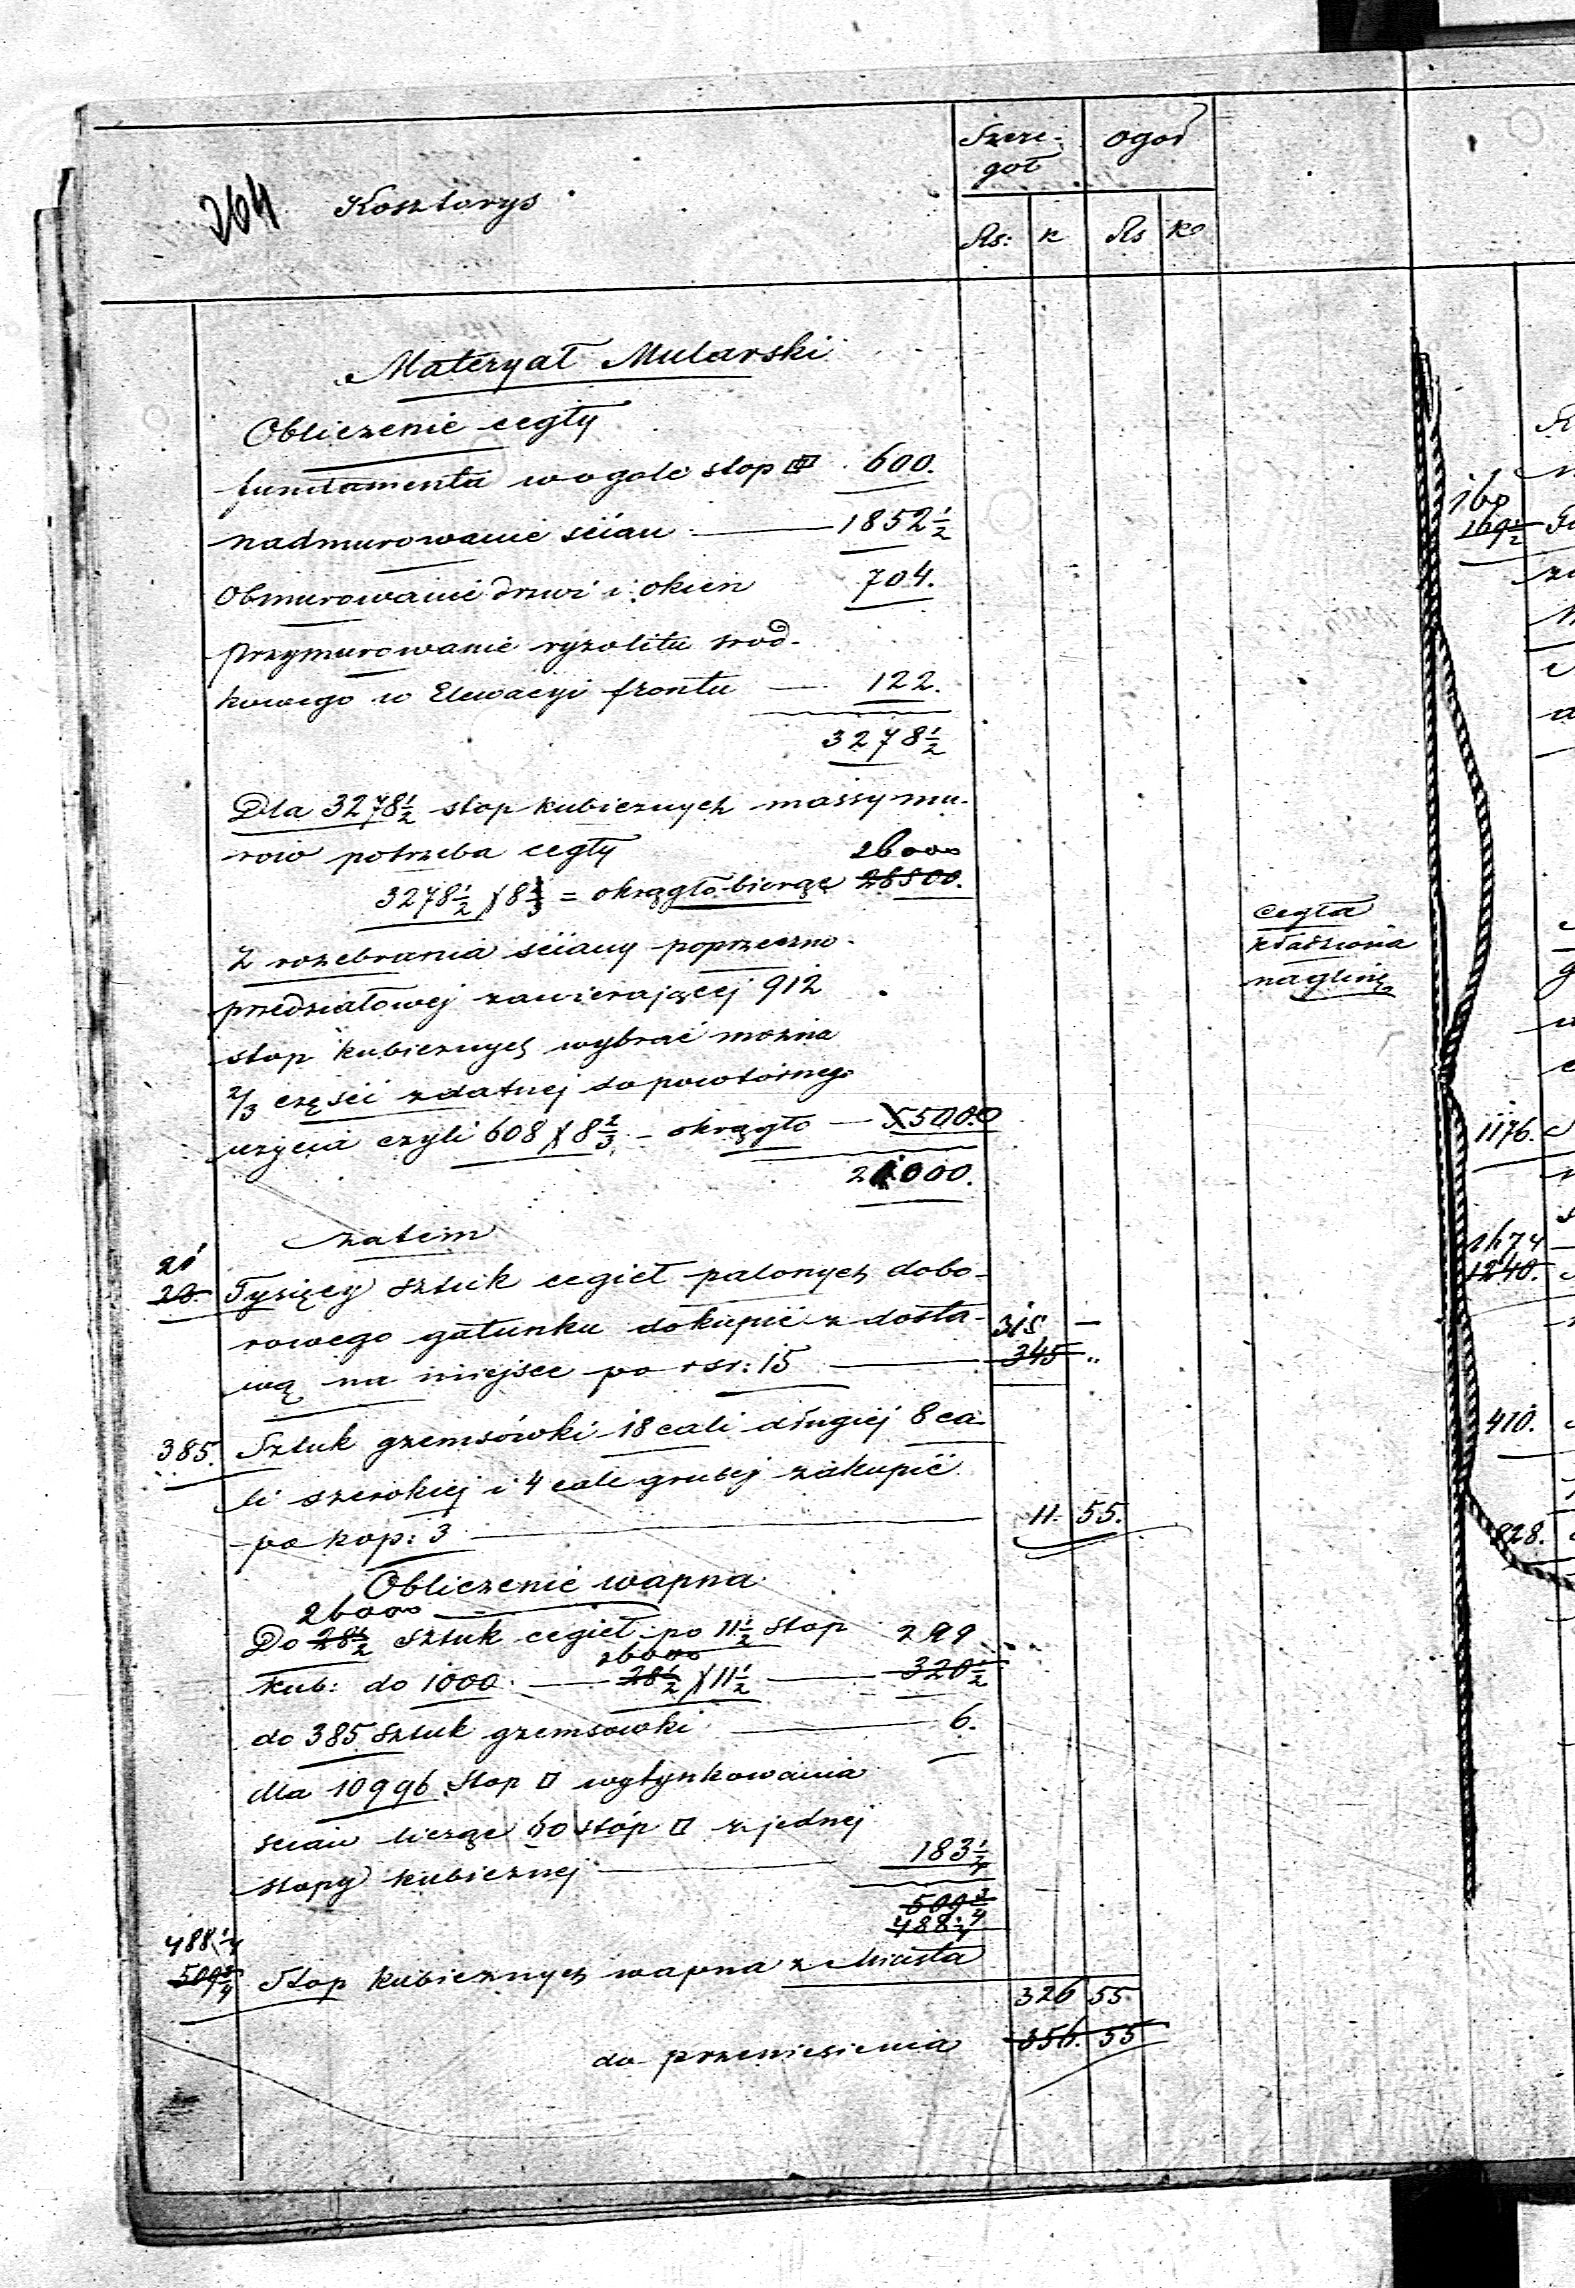 Szcze- ogoł
goł
264 Kosztorys
Rs: k Rs ko
Materyał Mularski
Obliczenie cegły
fundamenta wogole stop 600.
nadmurowanie ścian — 1852 1/2
Obmurowanie drzwi i okien 704.
przymurowanie ryzolitu srod-
kowego w Elewacyi frontu — 122.
3278 1/2
Dla 3278 1/2 stop kubicznych massy mu-
row potrzeba cegły 26000
3278 1/2 X 8 2/3 = okrągło biorąc 28500.
Z rozebrania ściany poprzeczno-
przedziałowej zawierającej 912
stop kubicznych wybrać można
2/3 części zdatnej do powtórnego
użycia czyli 608 X 8 2/3 - okrągło — 5000
21000.
cegła
kładziona
na glinę
zatem
21
20. Tysięcy sztuk cegieł palonych dobo-
rowego gatunku dokupić z dosta- 315 —
wą na miejsce po rsr: 15 — 345 "
385. Sztuk gzemsówki 18 cali długiej 8 ca-
li szerokiej i 4 cale grubej zakupić
po kop: 3 — 11. 55.
Obliczenie wapna
26000
Do 28 1/2 sztuk cegieł po 11 1/2 stop 299
26000
kub: do 1000. — 28 1/2 X 11 1/2 — 320 1/2
do 385 sztuk gzemsowki — 6.
dla 10996 stop □ wytynkowania
scian licząc 60 stóp □ z jednej
stopy kubicznej — 183 1/4
509 3/4
488 1/4
488 1/4
509 3/4 Stop kubicznych wapna z Miasta
326 55
do przeniesienia 356. 55
160
169 1/2
1176.
1674
1240.
410.
828.